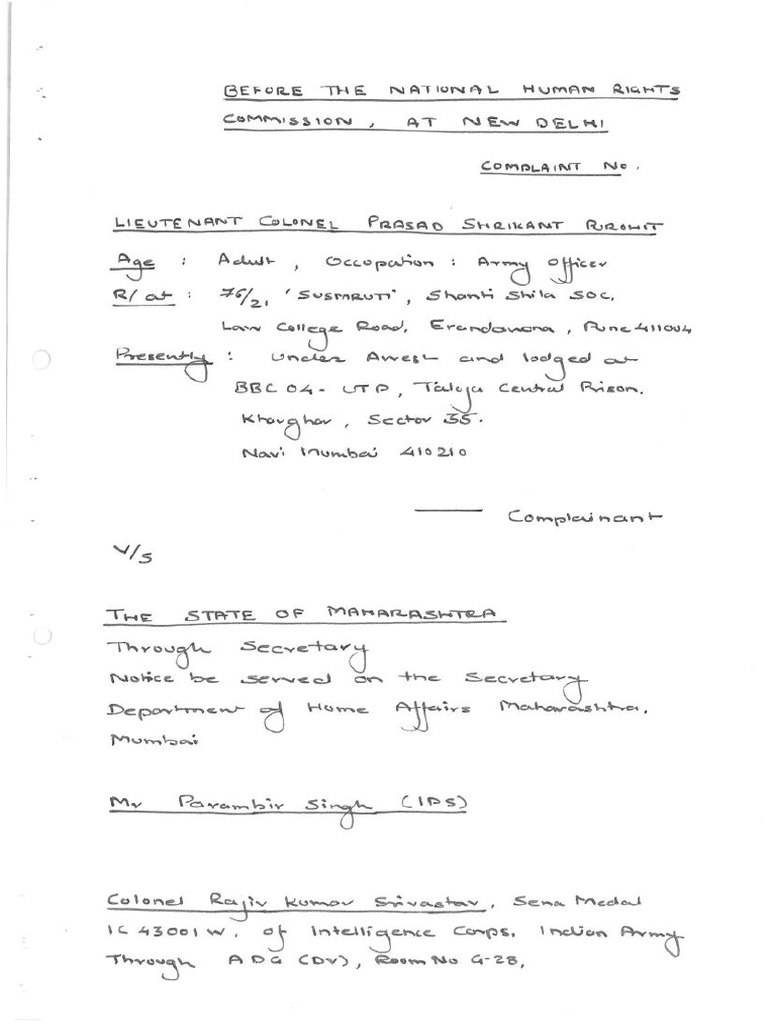 BEFORE THE NATIONAL HUMAN RIGHTS
COMMISSION, AT NEW DELHI
COMPLAINT No.
LIEUTENANT COLONEL PRASAD SHRIKANT PUROHIT
Age : Adult, Occupation : Army Officer
R/ at : 76/2, 'SUSMRUTI', Shanti Shila SOC,
Law College Road, Erandawana, Pune 411004
Presently : Under Arrest and lodged at
BBC 04 - UTP, Taloja Central Prison,
Kharghar, Sector 35.
Navi Mumbai 410210
Complainant
V/s
THE STATE OF MAHARASHTRA
Through Secretary
Notice be served on the Secretary
Department of Home Affairs Maharashtra,
Mumbai
Mr Parambir Singh (IPS)
Colonel Rajiv Kumar Srivastav, Sena Medal
IC 43001 W, of Intelligence Corps, Indian Army
Through ADG (DV), Room No G-28,